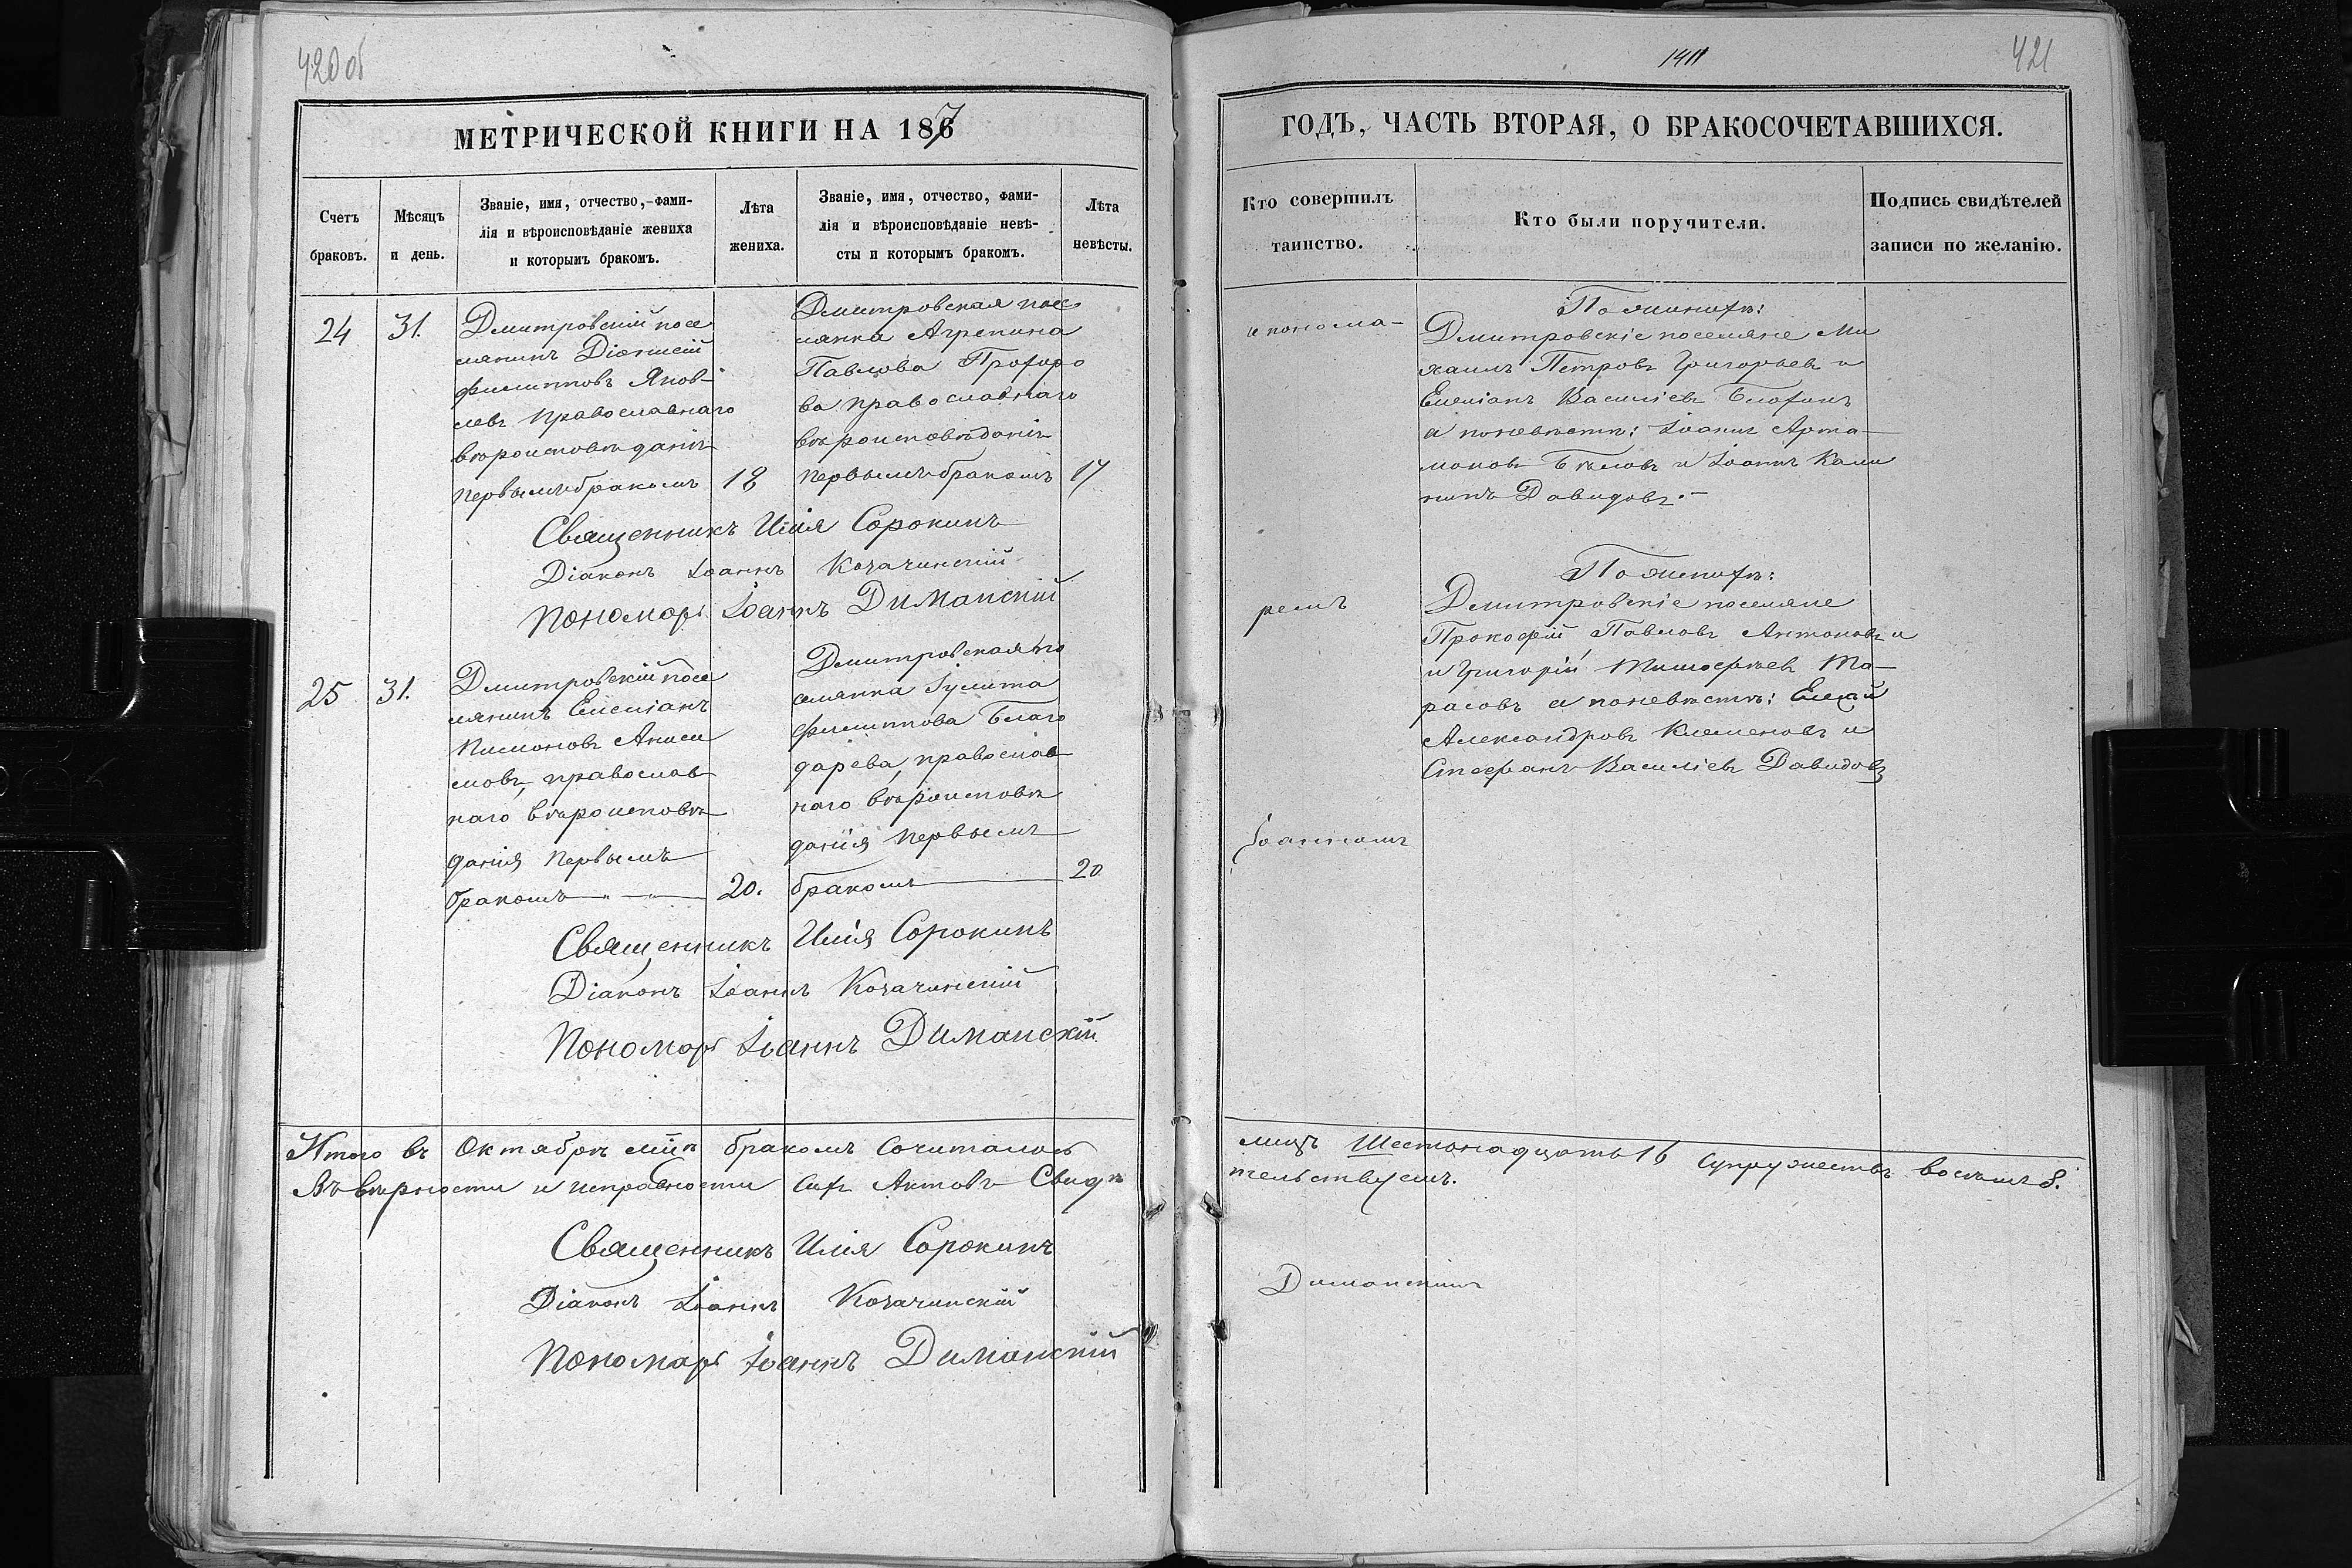 420 об
МЕТРИЧЕСКОЙ КНИГИ НА 1867
Счетъ браковъ.
Мѣсяцъ и день.
Званіе, имя, отчество, фами-
лія и вѣроисповѣданіе жениха
и которымъ бракомъ.
Лѣта жениха.
Званіе, имя, отчество, фами-
лія и вѣроисповѣданіе невѣ-
сты и которымъ бракомъ.
Лѣта невѣсты.
24
31.
Дмитровскій посе
лянинъ Діонисій
Филипповъ Яков-
левъ православнаго
вѣроисповѣданія
первымъ бракомъ
18
Дмитровская посе
лянка Агрепина
Павлова Прохоро
ва православнаго
вѣроисповѣданія
первымъ бракомъ
17
Священникъ Илія Сорокинъ
Діаконъ Іоаннъ Козачинскій
Пономарь Іоаннъ Диманскій
25
31.
Дмитровскій посе
лянинъ Емеліанъ
Пимоновъ Аниси
мовъ, православ
наго вѣроисповѣ
данія первымъ
бракомъ
20.
Дмитровская по
селянка Іулита
Филиппова Благо
дарева, православ
наго вѣроисповѣ
данія первымъ
бракомъ
20
Священникъ Илія Сорокинъ
Діаконъ Іоаннъ Козачинскій
Пономарь Іоаннъ Диманскій
Итого въ Октябрѣ м-цѣ бракомъ сочиталось
Въ вѣрности и исправности сихъ Актовъ Свидѣ
Священникъ Илія Сорокинъ
Діаконъ Іоаннъ Козачинскій
Пономарь Іоаннъ Диманскій
421
ГОДЪ, ЧАСТЬ ВТОРАЯ, О БРАКОСОЧЕТАВШИХСЯ.
Кто совершилъ
таинство.
Кто были поручители.
Подпись свидѣтелей
записи по желанію.
и понома-
По женихѣ:
Дмитровскіе поселяне Ми
хаилъ Петровъ Григорьевъ и
Емеліанъ Василіевъ
а по невѣстѣ: Іоаннъ Арта-
моновъ Бѣловъ и Іоаннъ Кали
нинъ Давидовъ.-
ремъ
По женихѣ:
Дмитровскіе поселяне
Прокофій Павловъ Антоновъ и
и Григорій Тимофѣевъ Та-
расовъ а по невѣстѣ:
Александровъ Клеменовъ и
Стефанъ Василіевъ Давидовъ
Іоанномъ
лицъ Шестьнадцать 16 супружествъ восемь 8.
тельствуемъ.
Диманскимъ